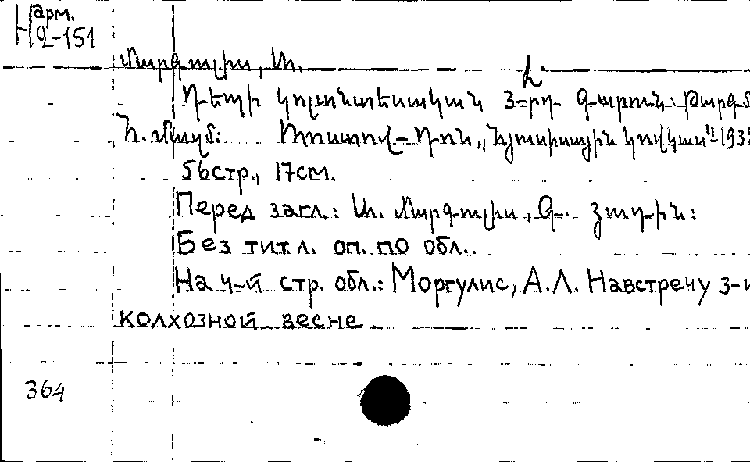 арм.
Մարգուլիս, Ա.
Դեպի կոլտնտեսական 3-րդ գարուն: Թարգմ
Ռոստով-Դոն, Հյուսիսային Կովկաս
56стр., 17см.
Перед загл.: Ա. Մարգուլիս, Գ.
Без титл. оп. по обл.
На 4-й стр. обл.: Моргулис, А.Л. Навстречу 3-
колхозной весне
364